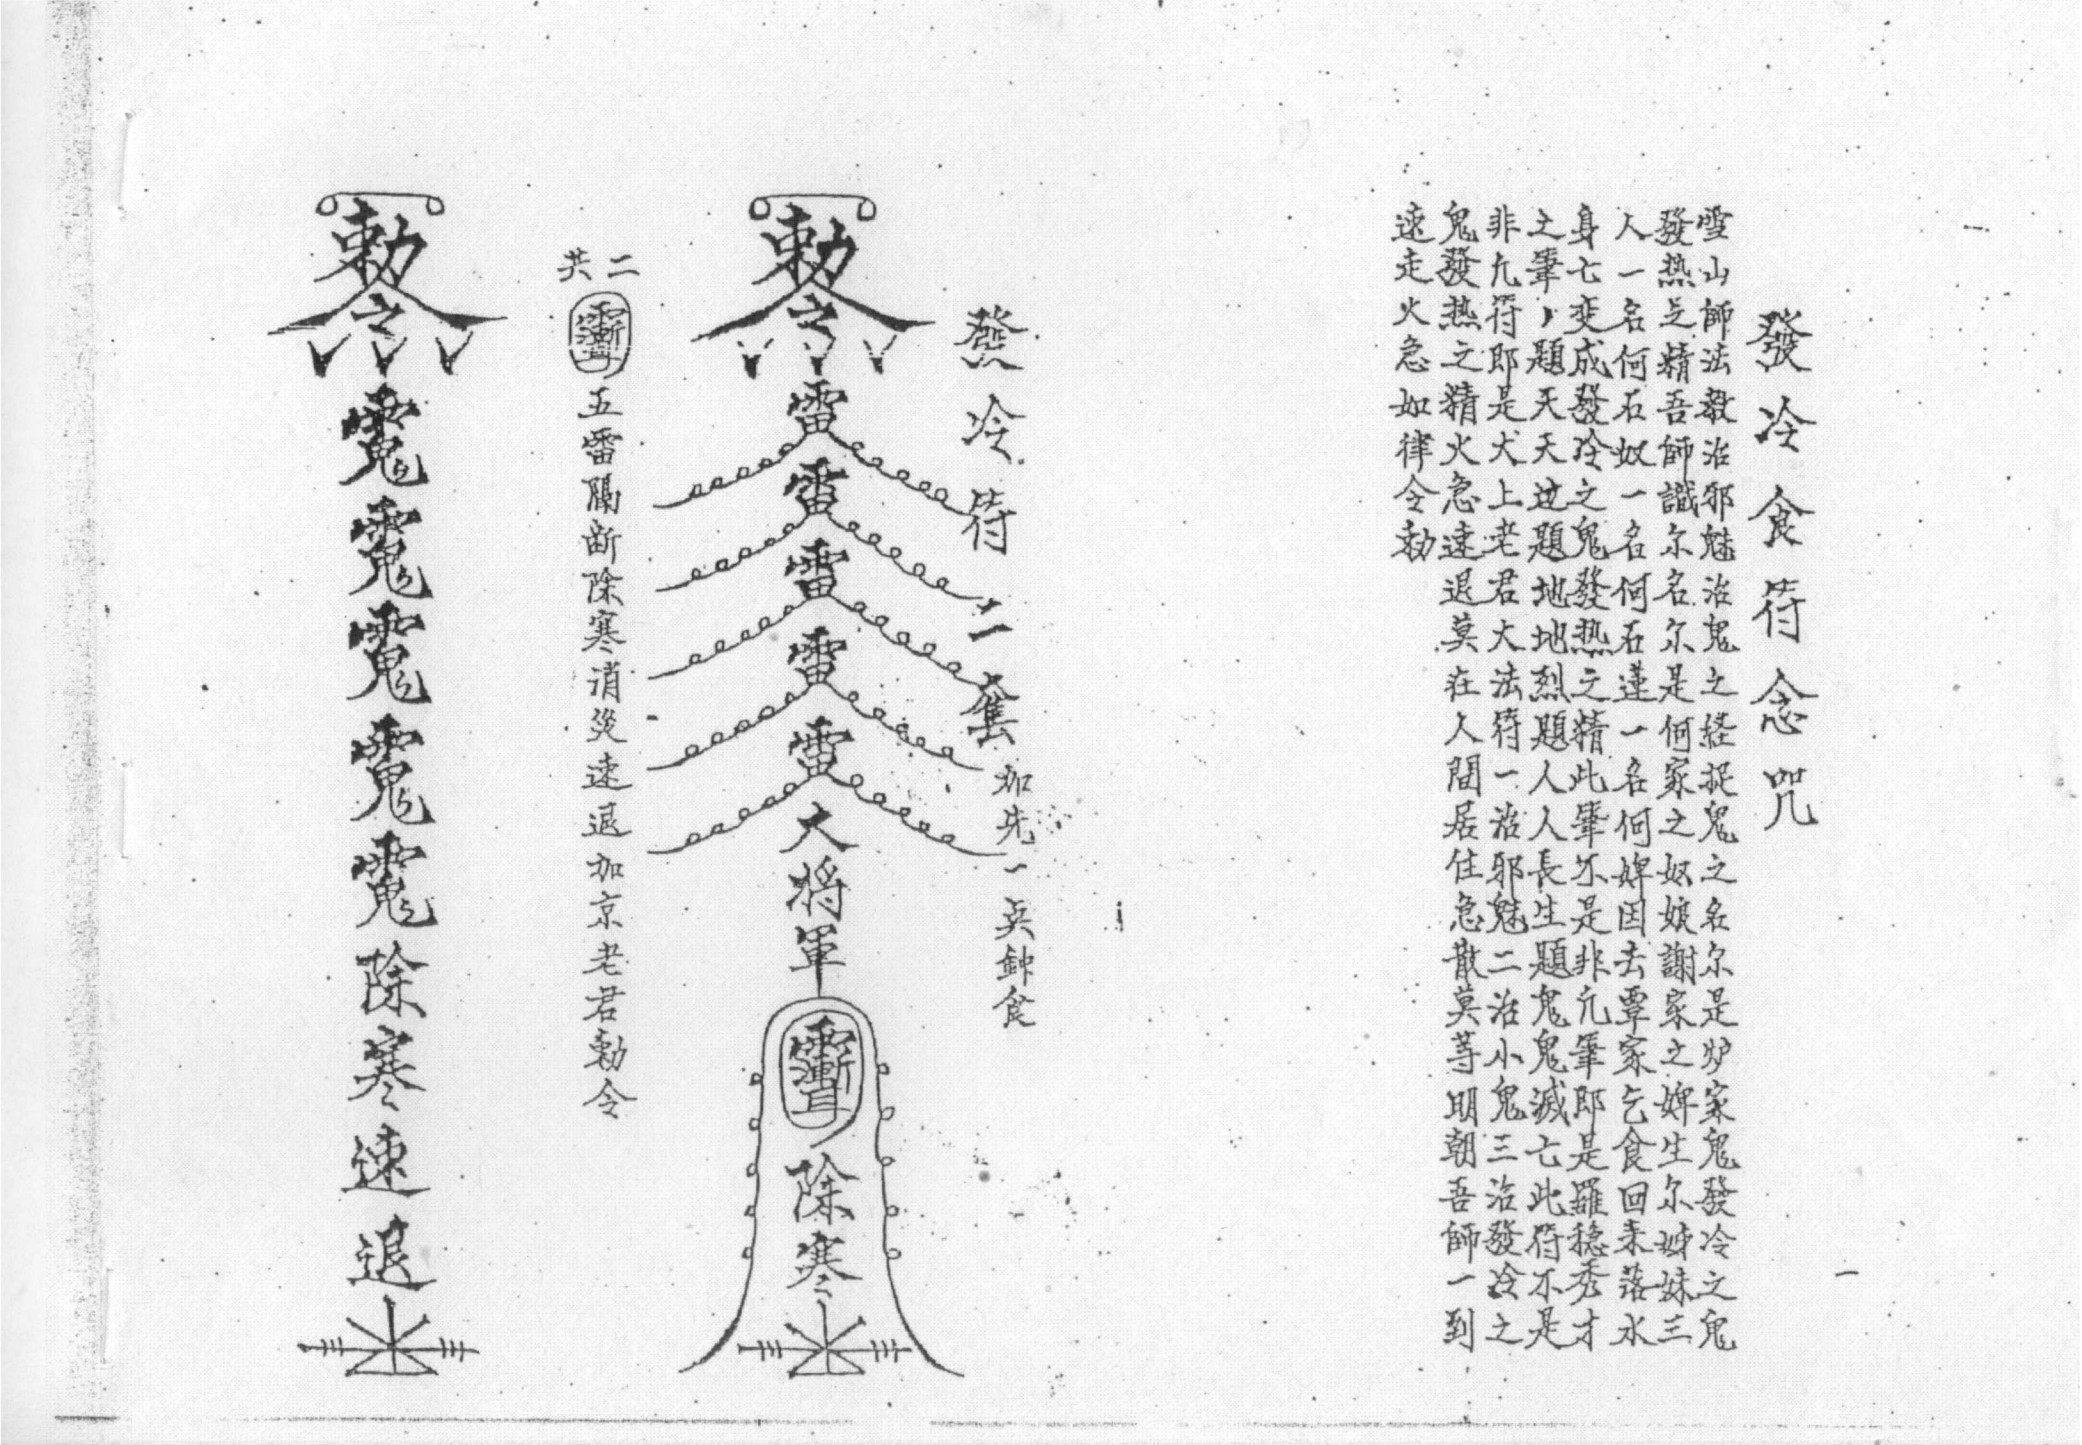 發冷食符念咒
雪山師法教治邪魅治鬼之経捉鬼之名尔是炉家鬼發冷之鬼
發热之精吾師識尔名尔是何家之奴娘謝家之婢生尔姊妹三
人一名何石奴一名何石蓮一名何婢因去覃家乞食回来落水
身七变成發冷之鬼發热之精此筆不是非凢筆即是羅稳秀才
之筆〻題天天逆題地地烈題人人長生題鬼鬼滅七此符不是
非凢符即是犬上老君大法符一治邪魅二治小鬼三治發冷之
鬼發热之精火急速退莫在人間居住急散莫等明朝吾師一到
速走火急如律令勅
發冷符二
加先一点鉮食
勅令
雷雷雷雷雷大将軍
除寒
共二
五雷隔断除寒消災速退加京老君勅令
勅令
除寒速退